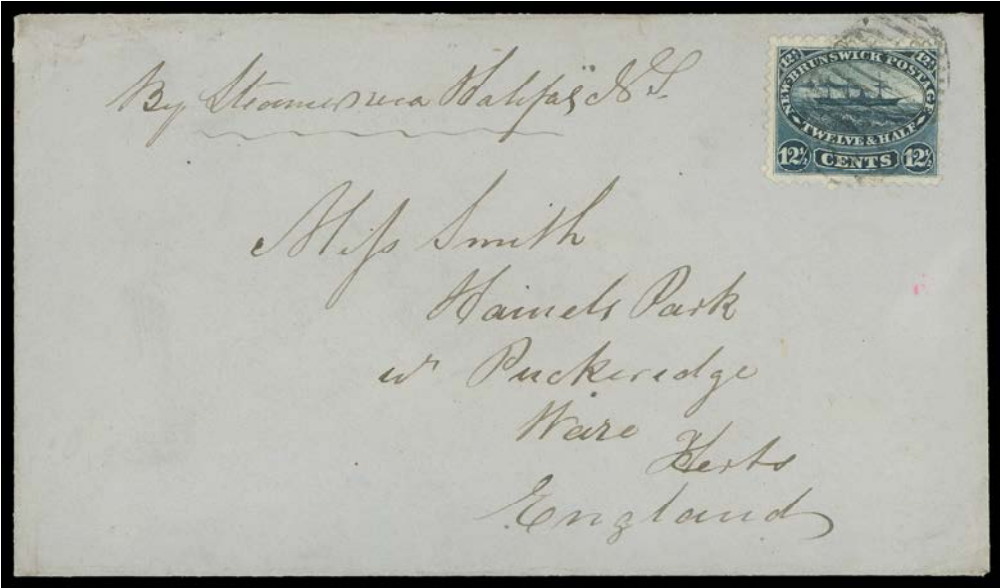 By Steamer via Halifax N.S.
12½ 12½
NEW-BRUNSWICK POSTAGE
TWELVE & HALF
12½ CENTS 12½
Miss Smith
Hamels Park
nr Puckeridge
Ware
Herts
England